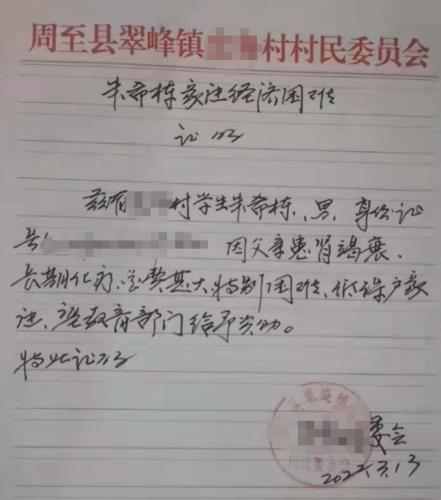 周至县翠峰镇村村民委员会
朱奇栋家迁经济困难
证明
兹有村学生朱奇栋、男、身份证
号因父亲患肾竭衰、
长期化疗、花费甚大、特别困难、低保户家
迁、望教育部门给予资助。
特此证明
委会
2022.3.13